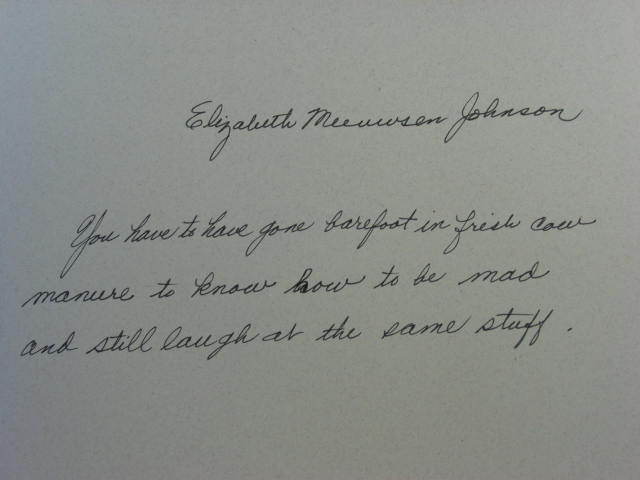 Elizabeth Meeuwsen Johnson
You have to have gone barefoot in fresh cow
manure to know how to be mad
and still laugh at the same stuff.